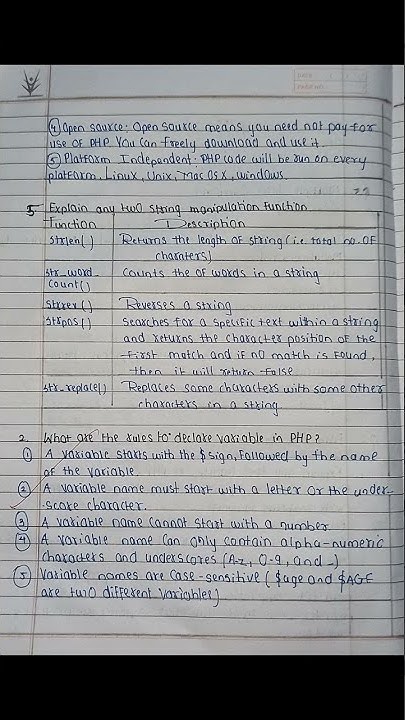 ④ Open saurce: Open source means you need not pay for
use of PHP. You can freely download and use it.
⑤ Platform Independent: PHP code will be run on every
platform, Linux, Unix, Mac OS X, windows.
5 Explain any two string manipulation function
Function Description
strlen() Returns the length of string (i.e. total no. of
charaters)
str_word_ Counts the of words in a string
count()
strrev() Reverses a string
strpos() Searches for a specific text within a string
and returns the character position of the
first match and if no match is found,
then it will return false
str_replace() Replaces some characters with some other
characters in a string
2. What are the rules to declare variable in PHP?
① A variable starts with the $ sign, followed by the name
of the variable
② A variable name must start with a letter or the under-
score character.
③ A variable name cannot start with a number
④ A variable name can only contain alpha-numeric
characters and underscores (A-z, 0-9, and _)
⑤ Variable names are case-sensitive ($age and $AGE
are two different variables)